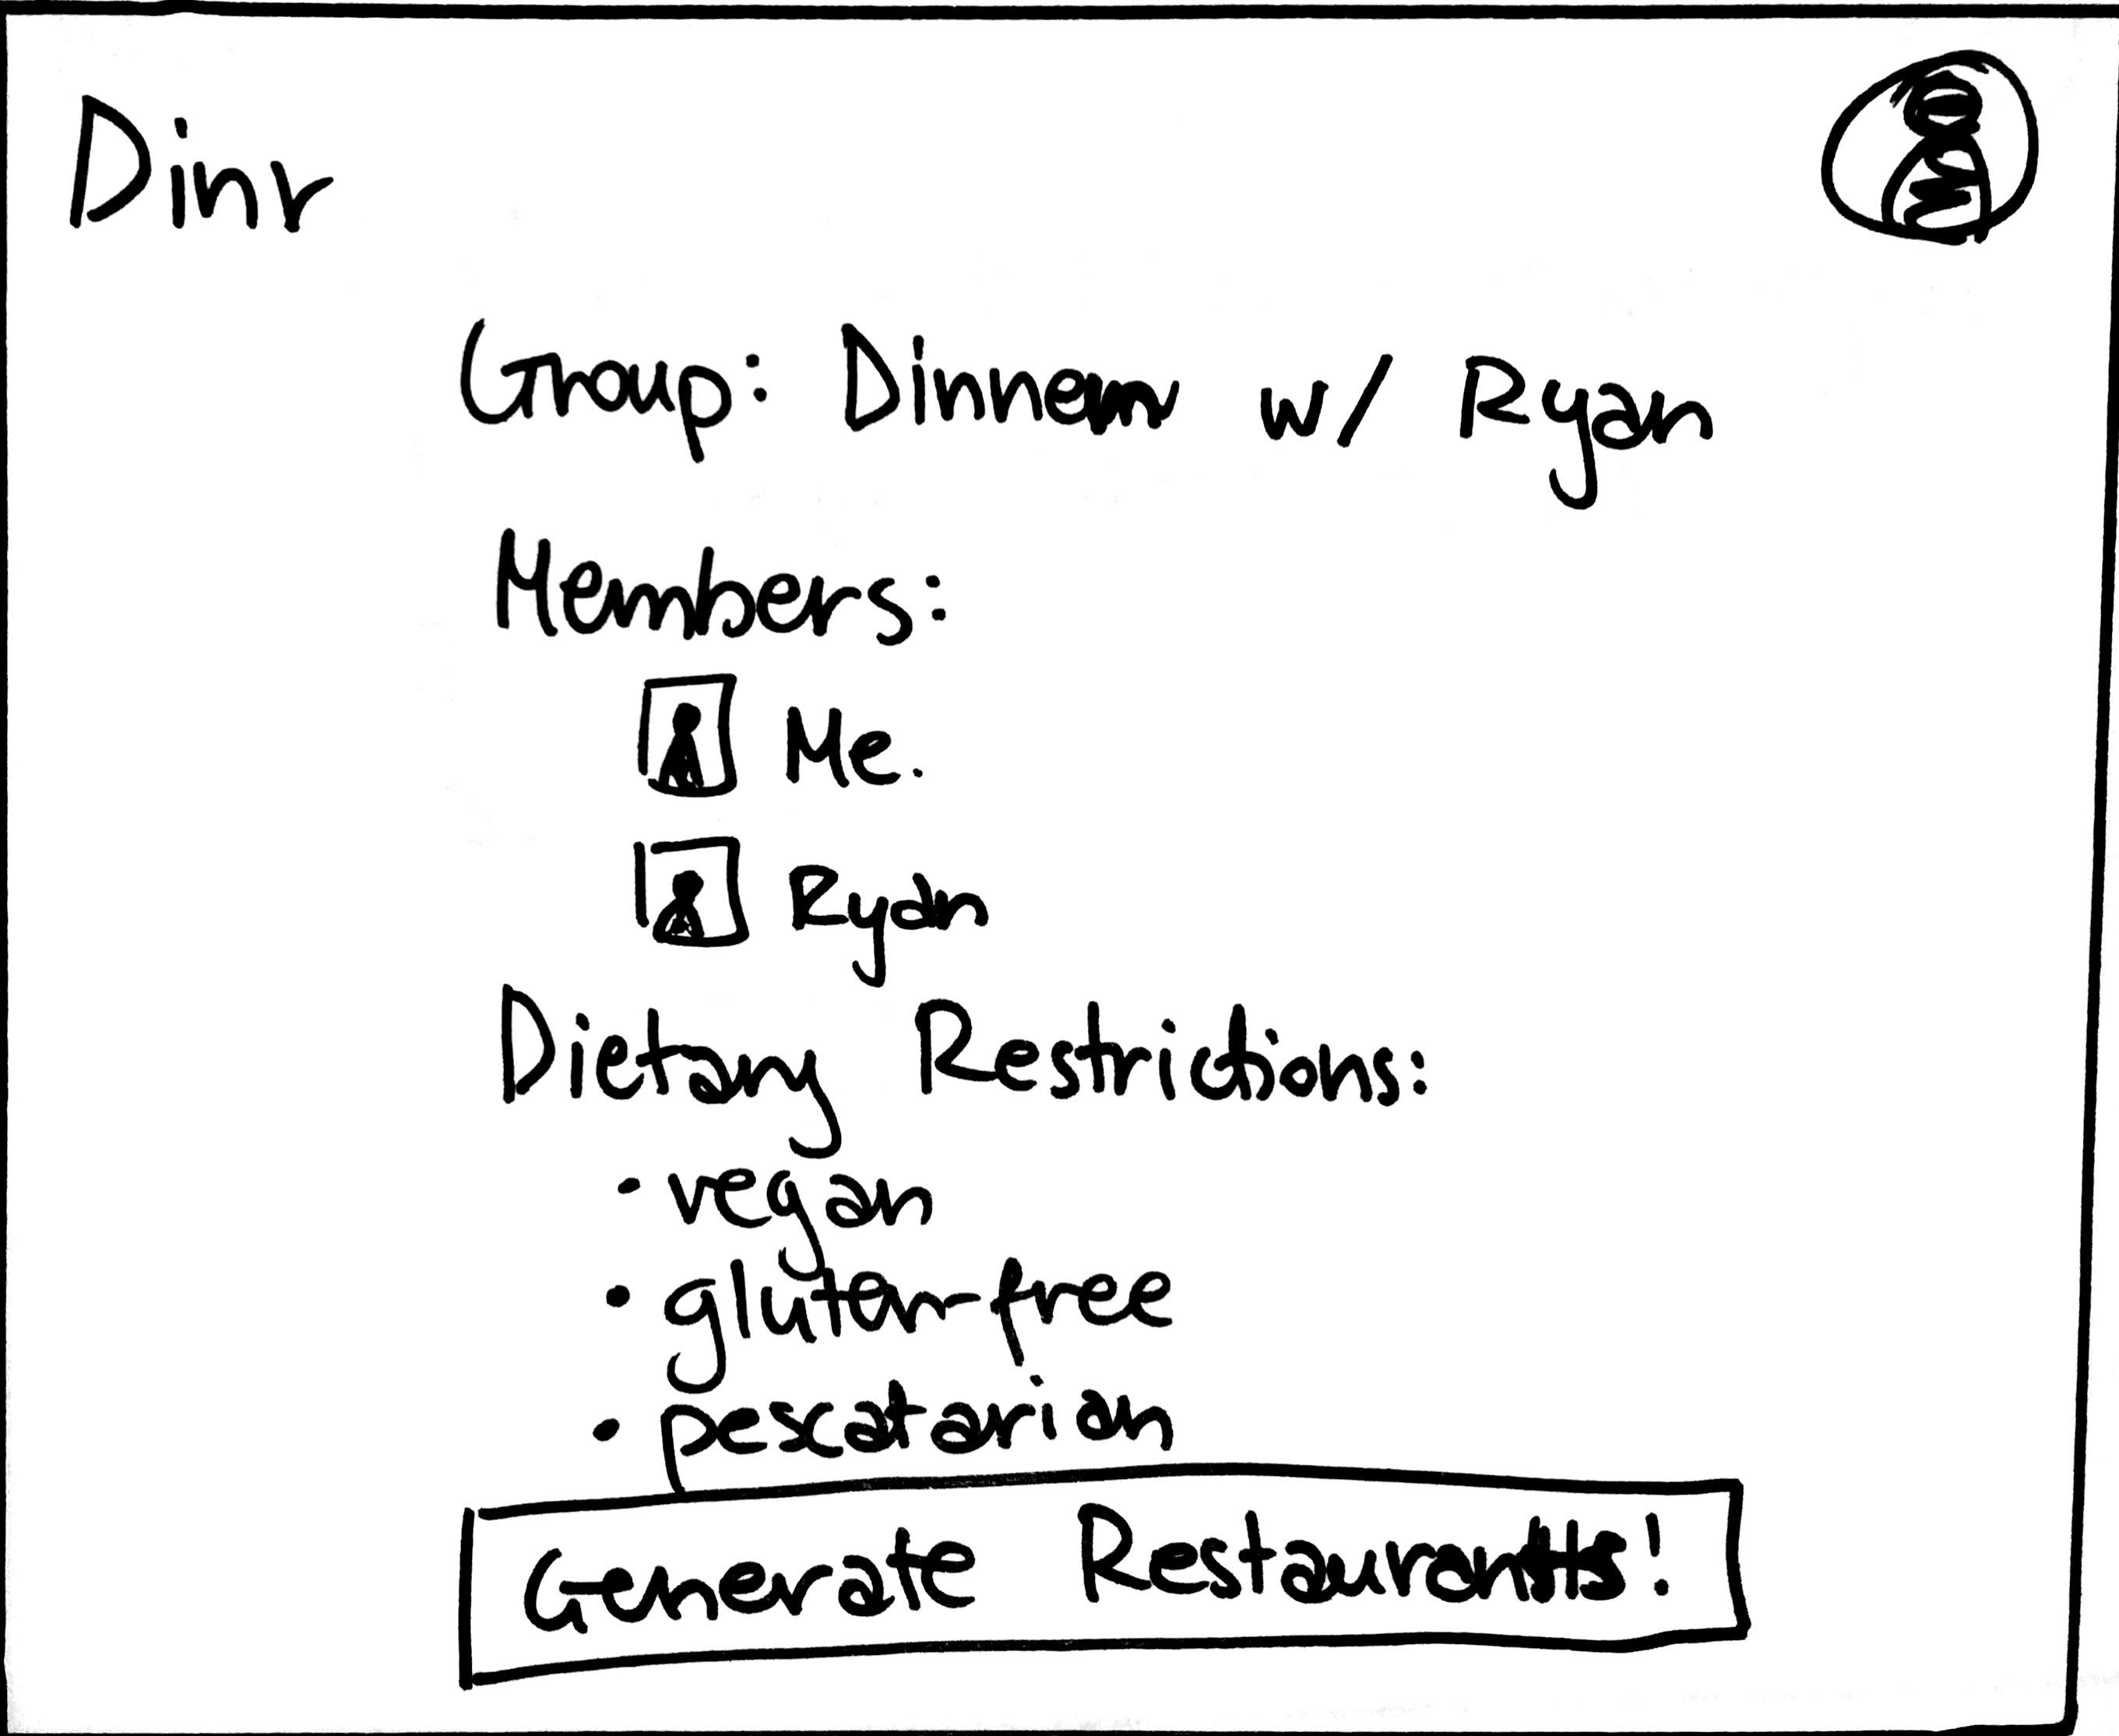 Dinr
Group: Dinner w/ Ryan
Members:
Me.
Ryan
Dietary Restrictions:
• vegan
• gluten-free
• pescatarian
Generate Restaurants!